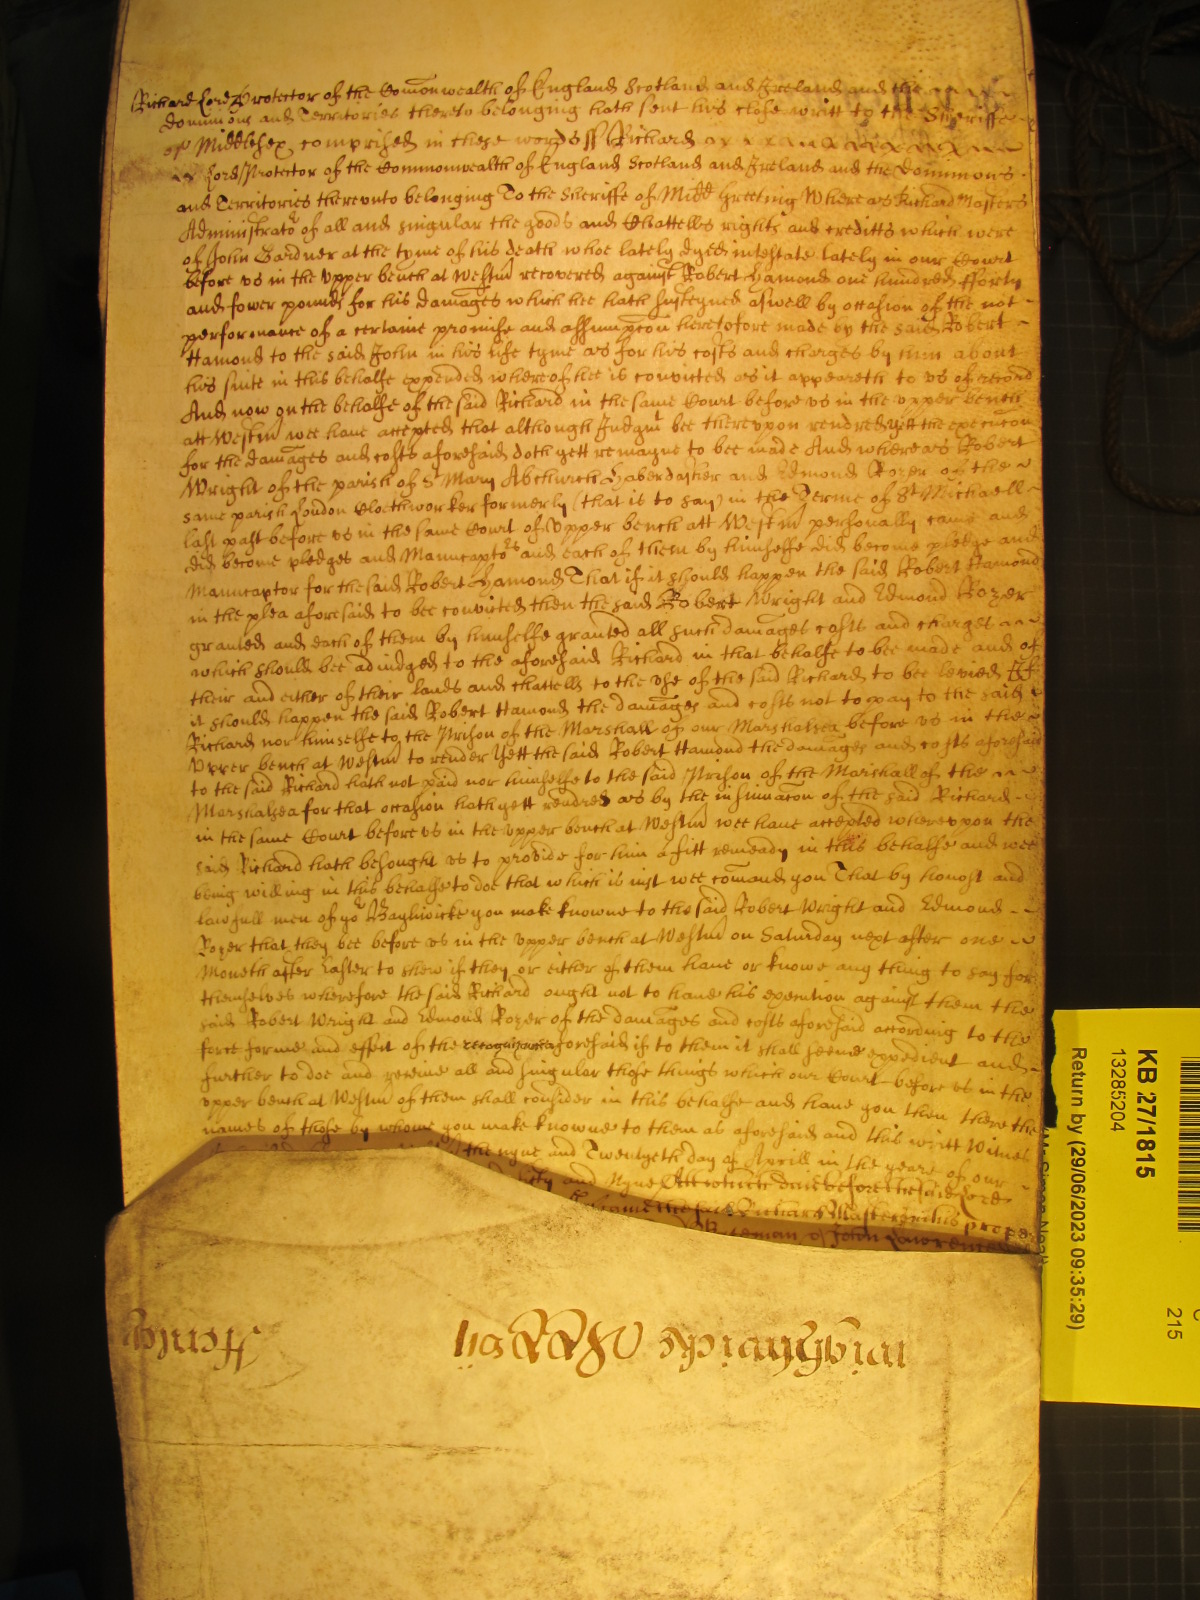 Richard Lord Protector of the Comonwealth of England Scotland and Ireland and the
dominions and Territories thereto belonging hath sent his close writt to the Sheriffe
of Middlesex comprised in these words ss Richard
Lord Protector of the Commonwealth of England Scotland and Ireland and the Dominions
and Territories therevnto belonging To the Sheriffe of Midd Greeting Whereas Richard Masters
Administrator of all and singular the goods and Chattells rights and creditts which were
of John Gardner at the tyme of his death whoe lately dyed intestate lately in our Court
before vs in the vpper bench at Westm recovered against Robert Hamond one hundred fforty
and fower pounds for his damages which hee hath susteyned aswell by occasion of the not
performance of a certaine promise and assumpcon heretofore made by the said Robert
Hamond to the said John in his life tyme as for his costs and charges by him about
his suite in this behalfe expended whereof hee is convicted as it appeareth to vs of record
And now on the behalfe of the said Richard in the same Court before vs in the vpper bench
att Westm wee haue accepted that although Judgmt bee therevpon rendred yett the execucon
for the damages and costs aforesaid doth yett remayne to bee made And whereas Robert
Wright of the parish of St Mary Abchurch Haberdasher and Edmond Rozer of the
same parish London Cloethworker formerly (that is to say) in the Terme of St Michaell
last past before vs in the same Court of vpper bench att Westm personally came and
did become pledges and Manucaptors and each of them by himselfe did become pledge and
Manucaptor for the said Robert Hamond That if it should happen the said Robert Hamond
in the plea aforesaid to bee convicted then the said Robert Wright and Edmond Rozer
granted and each of them by himselfe granted all such damages costs and charges
which should bee adiudged to the aforesaid Richard in that behalfe to bee made and of
their and either of their lands and chattells to the vse of the said Richard to bee levied If
it should happen the said Robert Hamond the damages and costs not to pay to the said
Richard nor himselfe to the Prison of the Marshall of our Marshalsea before vs in the
vpper bench at Westm to render Yett the said Robert Hamond the damages and costs aforesaid
to the said Richard hath not paid nor himselfe to the said Prison of the Marshall of the
Marshalsea for that occasion hath yett rendred as by the insinuacon of the said Richard
in the same Court before vs in the vpper bench at Westm wee haue accepted wherevpon the
said Richard hath besought vs to provide for him a fitt remeady in this behalfe and wee
being willing in this behalfe to doe that which is iust wee comand you That by honest and
lawfull men of yor Bayliwicke you make knowne to the said Robert Wright and Edmond
Rozer that they bee before vs in the vpper bench at Westm on Saturday next after one
Moneth after Easter to shew if they or either of them haue or knowe any thing to say for
themselves wherefore the said Richard ought not to haue his execution against them the
said Robert Wright and Edmond Rozer of the damages and costs aforesaid according to the
force forme and effect of the recognizance aforesaid if to them it shall seeme expedient and
further to doe and receiue all and singular those things which our Court before vs in the
vpper bench at Westm of them shall consider in this behalfe and haue you then there the
names of those by whome you make knowne to them as aforesaid and this writt Witnes
the nyne and Twentyeth day of Aprill in the yeare of our
ffifty and Nyne Att which day before the said Lord
came the said Richard Masters in his proper
KB 27/1815
13285204
Return by (29/06/2023 09:35:29)
215